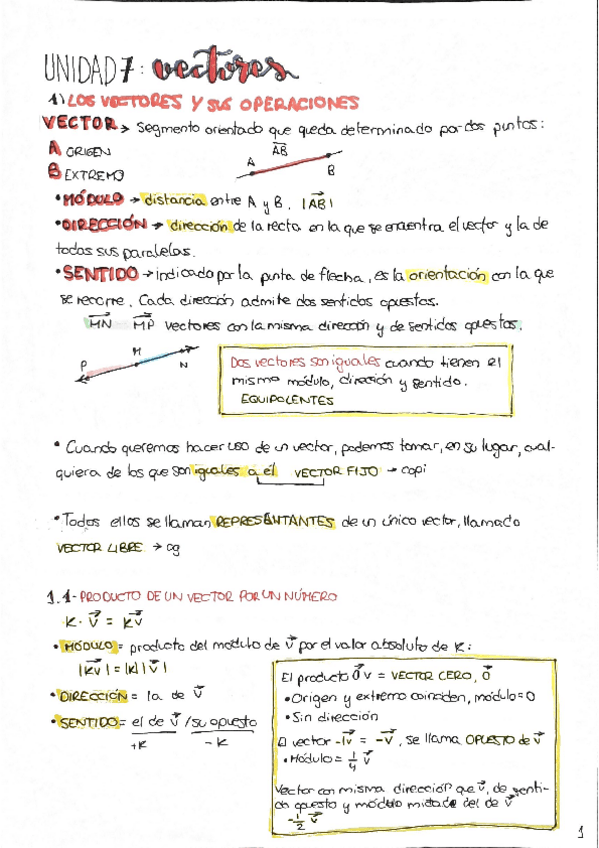 UNIDAD 7: vectores
1) LOS VECTORES Y SUS OPERACIONES
VECTOR → Segmento orientado que queda determinado por dos puntos:
A ORIGEN
B EXTREMO
AB
A
B
• MÓDULO → distancia entre A y B. |AB|
• DIRECCIÓN → dirección de la recta en la que se encuentra el vector y la de
todas sus paralelas.
• SENTIDO → indicado por la punta de flecha, es la orientación con la que
se recorre. Cada dirección admite dos sentidos opuestos.
MN MP vectores con la misma dirección y de sentidos opuestos.
P
M
N
Dos vectores son iguales cuando tienen el
mismo módulo, dirección y sentido.
EQUIPOLENTES
• Cuando queremos hacer uso de un vector, podemos tomar, en su lugar, cual-
quiera de los que son iguales a él VECTOR FIJO → copi
• Todos ellos se llaman REPRESENTANTES de un único vector, llamado
VECTOR LIBRE → og
1.1- PRODUCTO DE UN VECTOR POR UN NÚMERO
K · v = Kv
• MÓDULO = producto del módulo de v por el valor absoluto de K:
|Kv| = |K| |v|
• DIRECCIÓN = la de v
• SENTIDO = el de v / su opuesto
+K -K
El producto 0v = VECTOR CERO, 0
• Origen y extremo coinciden, módulo = 0
• Sin dirección
El vector -1v = -v, se llama OPUESTO de v
• Módulo = 1/4 v
Vector con misma dirección que v, de senti-
do opuesto y módulo mitad del de v
-1/2 v
1